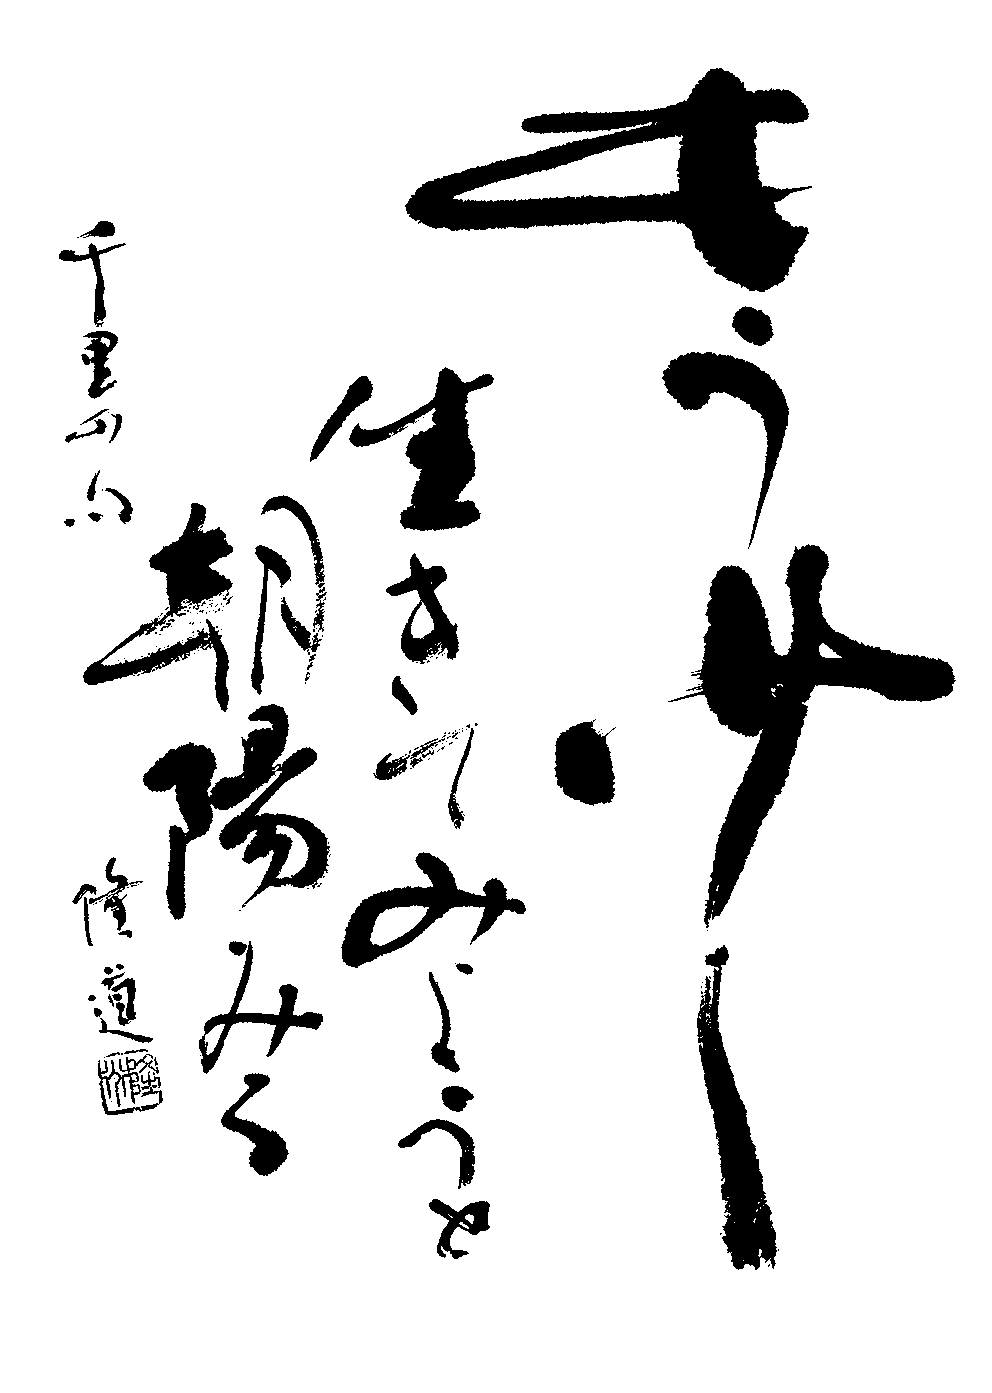 もう少し
生きてみようと
朝陽みる
千里山
隆道